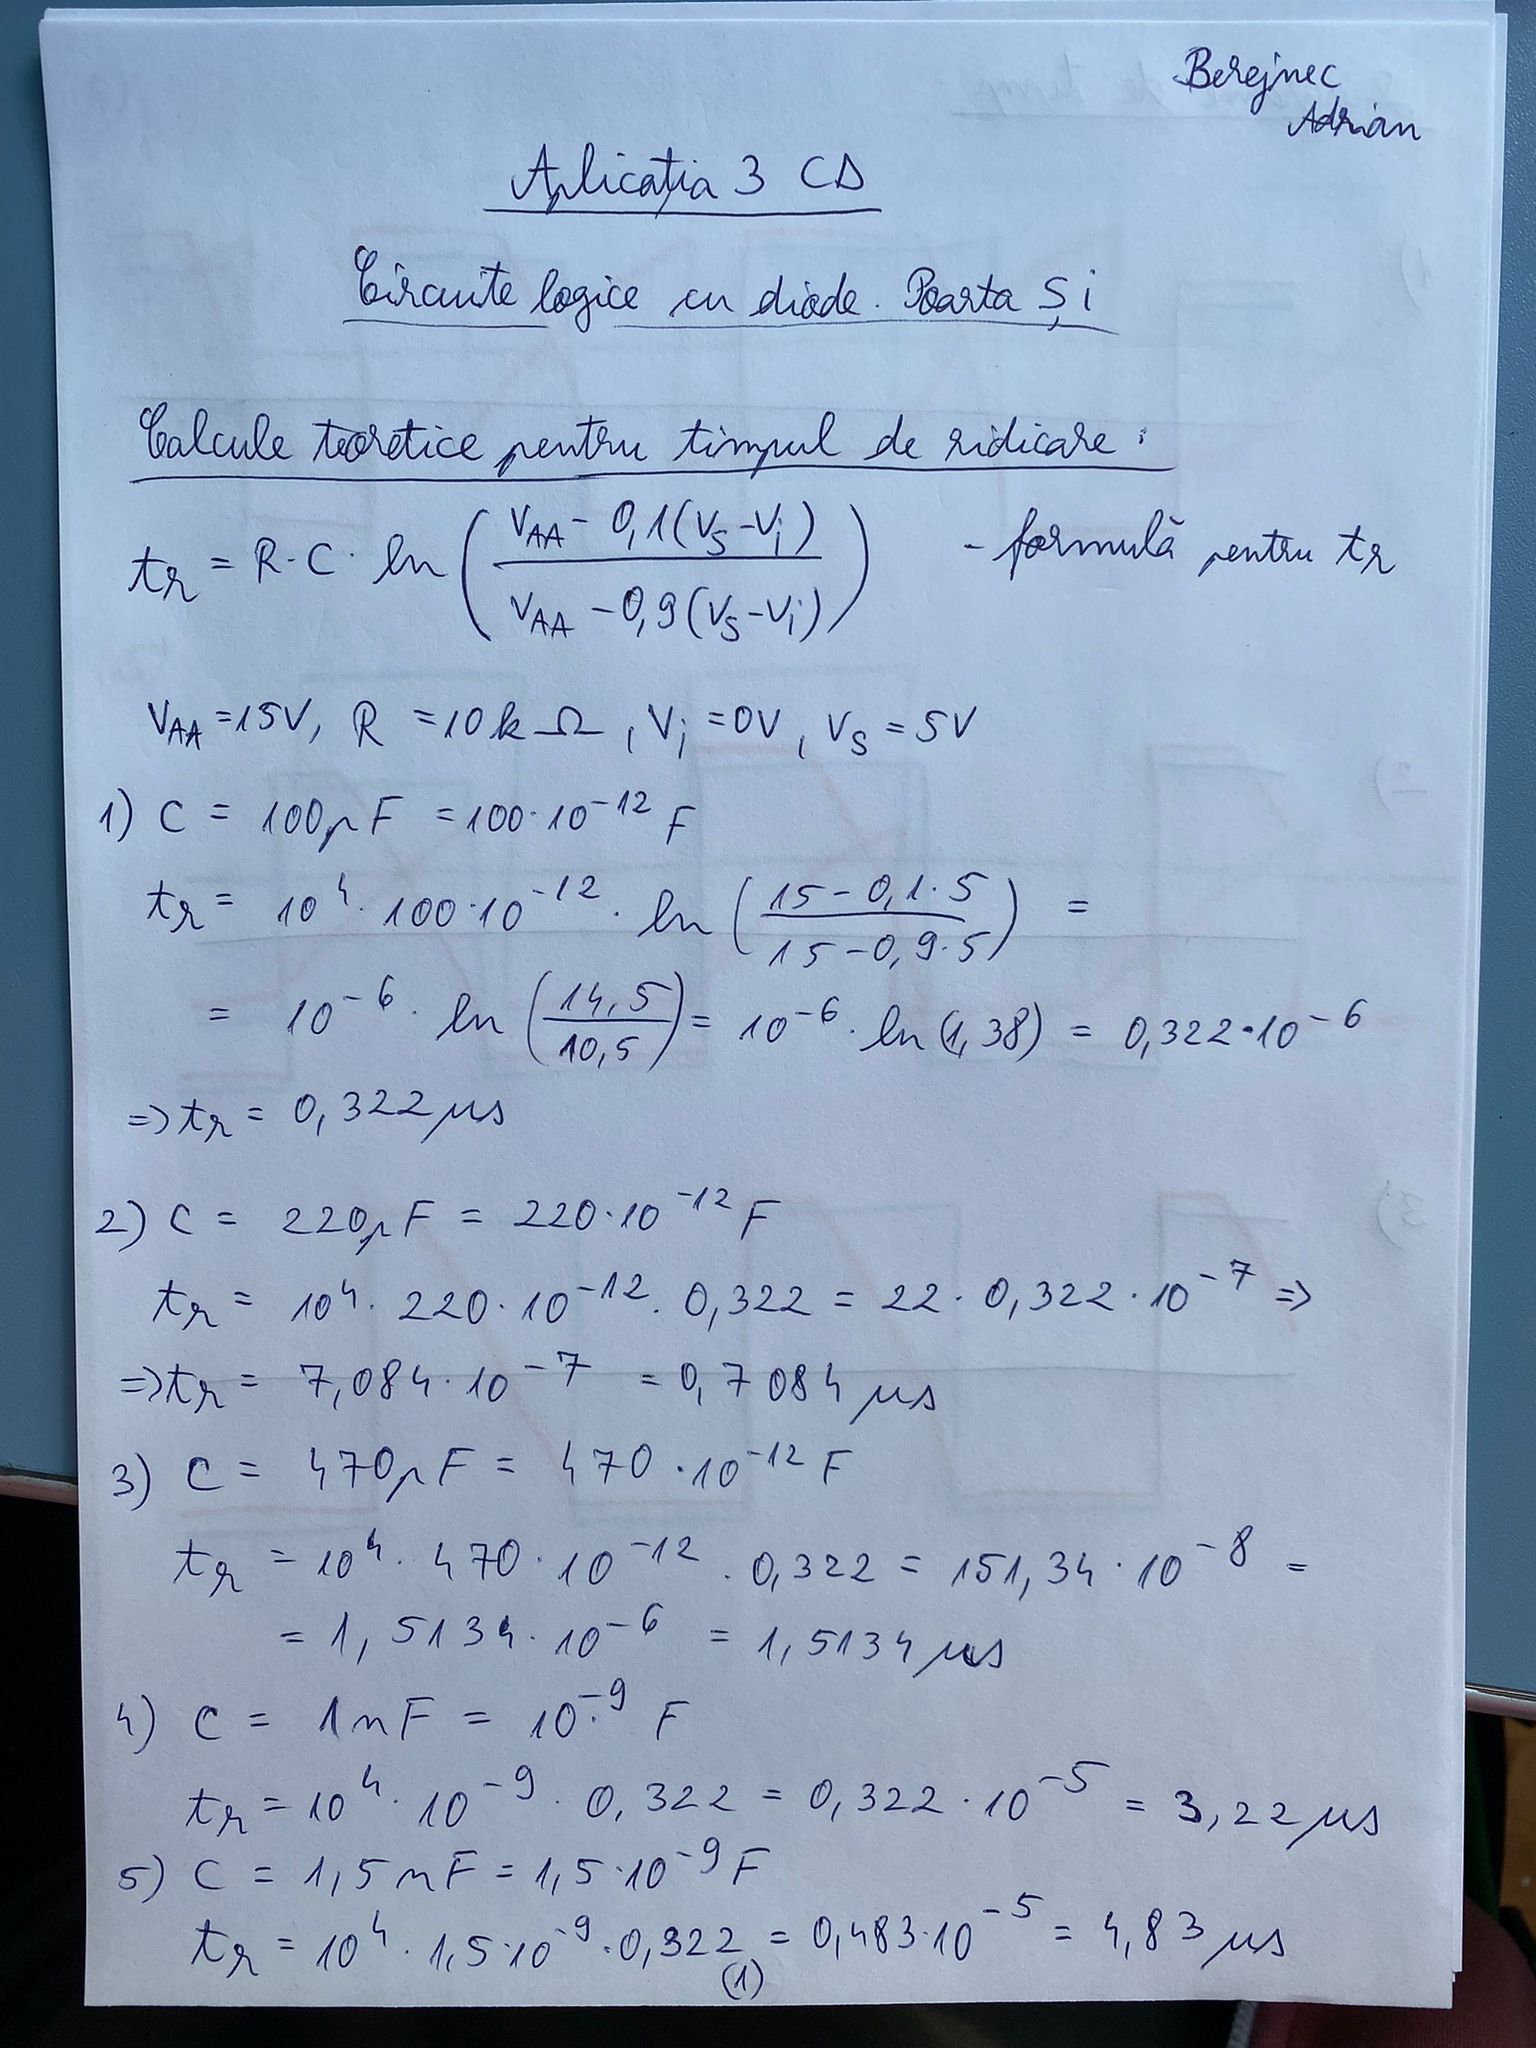 Berejnec
Adrian
Aplicația 3 CD
Circuite logice cu diode. Poarta Și
Calcule teoretice pentru timpul de ridicare:
tr = R·C· ln ( (VAA - 0,1(VS-Vi)) / (VAA - 0,9(VS-Vi)) ) - formulă pentru tr
VAA = 15V, R = 10kΩ, Vi = 0V, VS = 5V
1) C = 100pF = 100·10^-12 F
tr = 10^4 · 100·10^-12 · ln ( (15-0,1·5) / (15-0,9·5) ) =
= 10^-6 · ln ( 14,5 / 10,5 ) = 10^-6 · ln(1,38) = 0,322·10^-6
=> tr = 0,322 μs
2) C = 220pF = 220·10^-12 F
tr = 10^4 · 220·10^-12 · 0,322 = 22 · 0,322 · 10^-7 =>
=> tr = 7,084·10^-7 = 0,7084 μs
3) C = 470pF = 470·10^-12 F
tr = 10^4 · 470·10^-12 · 0,322 = 151,34·10^-8 =
= 1,5134·10^-6 = 1,5134 μs
4) C = 1nF = 10^-9 F
tr = 10^4 · 10^-9 · 0,322 = 0,322·10^-5 = 3,22 μs
5) C = 1,5nF = 1,5·10^-9 F
tr = 10^4 · 1,5·10^-9 · 0,322 = 0,483·10^-5 = 4,83 μs
(1)